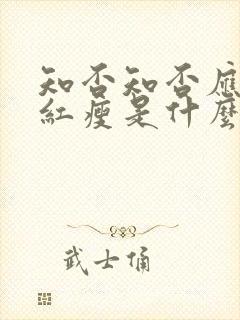 知否知否應
紅瘦是什麼
武士俑